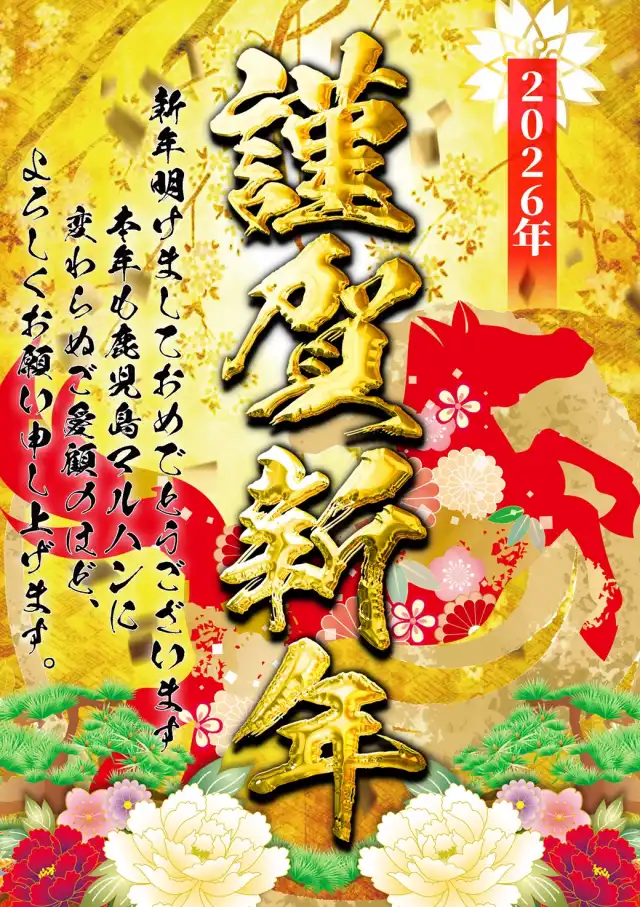 2026年
謹賀新年
新年明けましておめでとうございます
本年も鹿児島マルハンに
変わらぬご愛顧のほど、
よろしくお願い申し上げます。